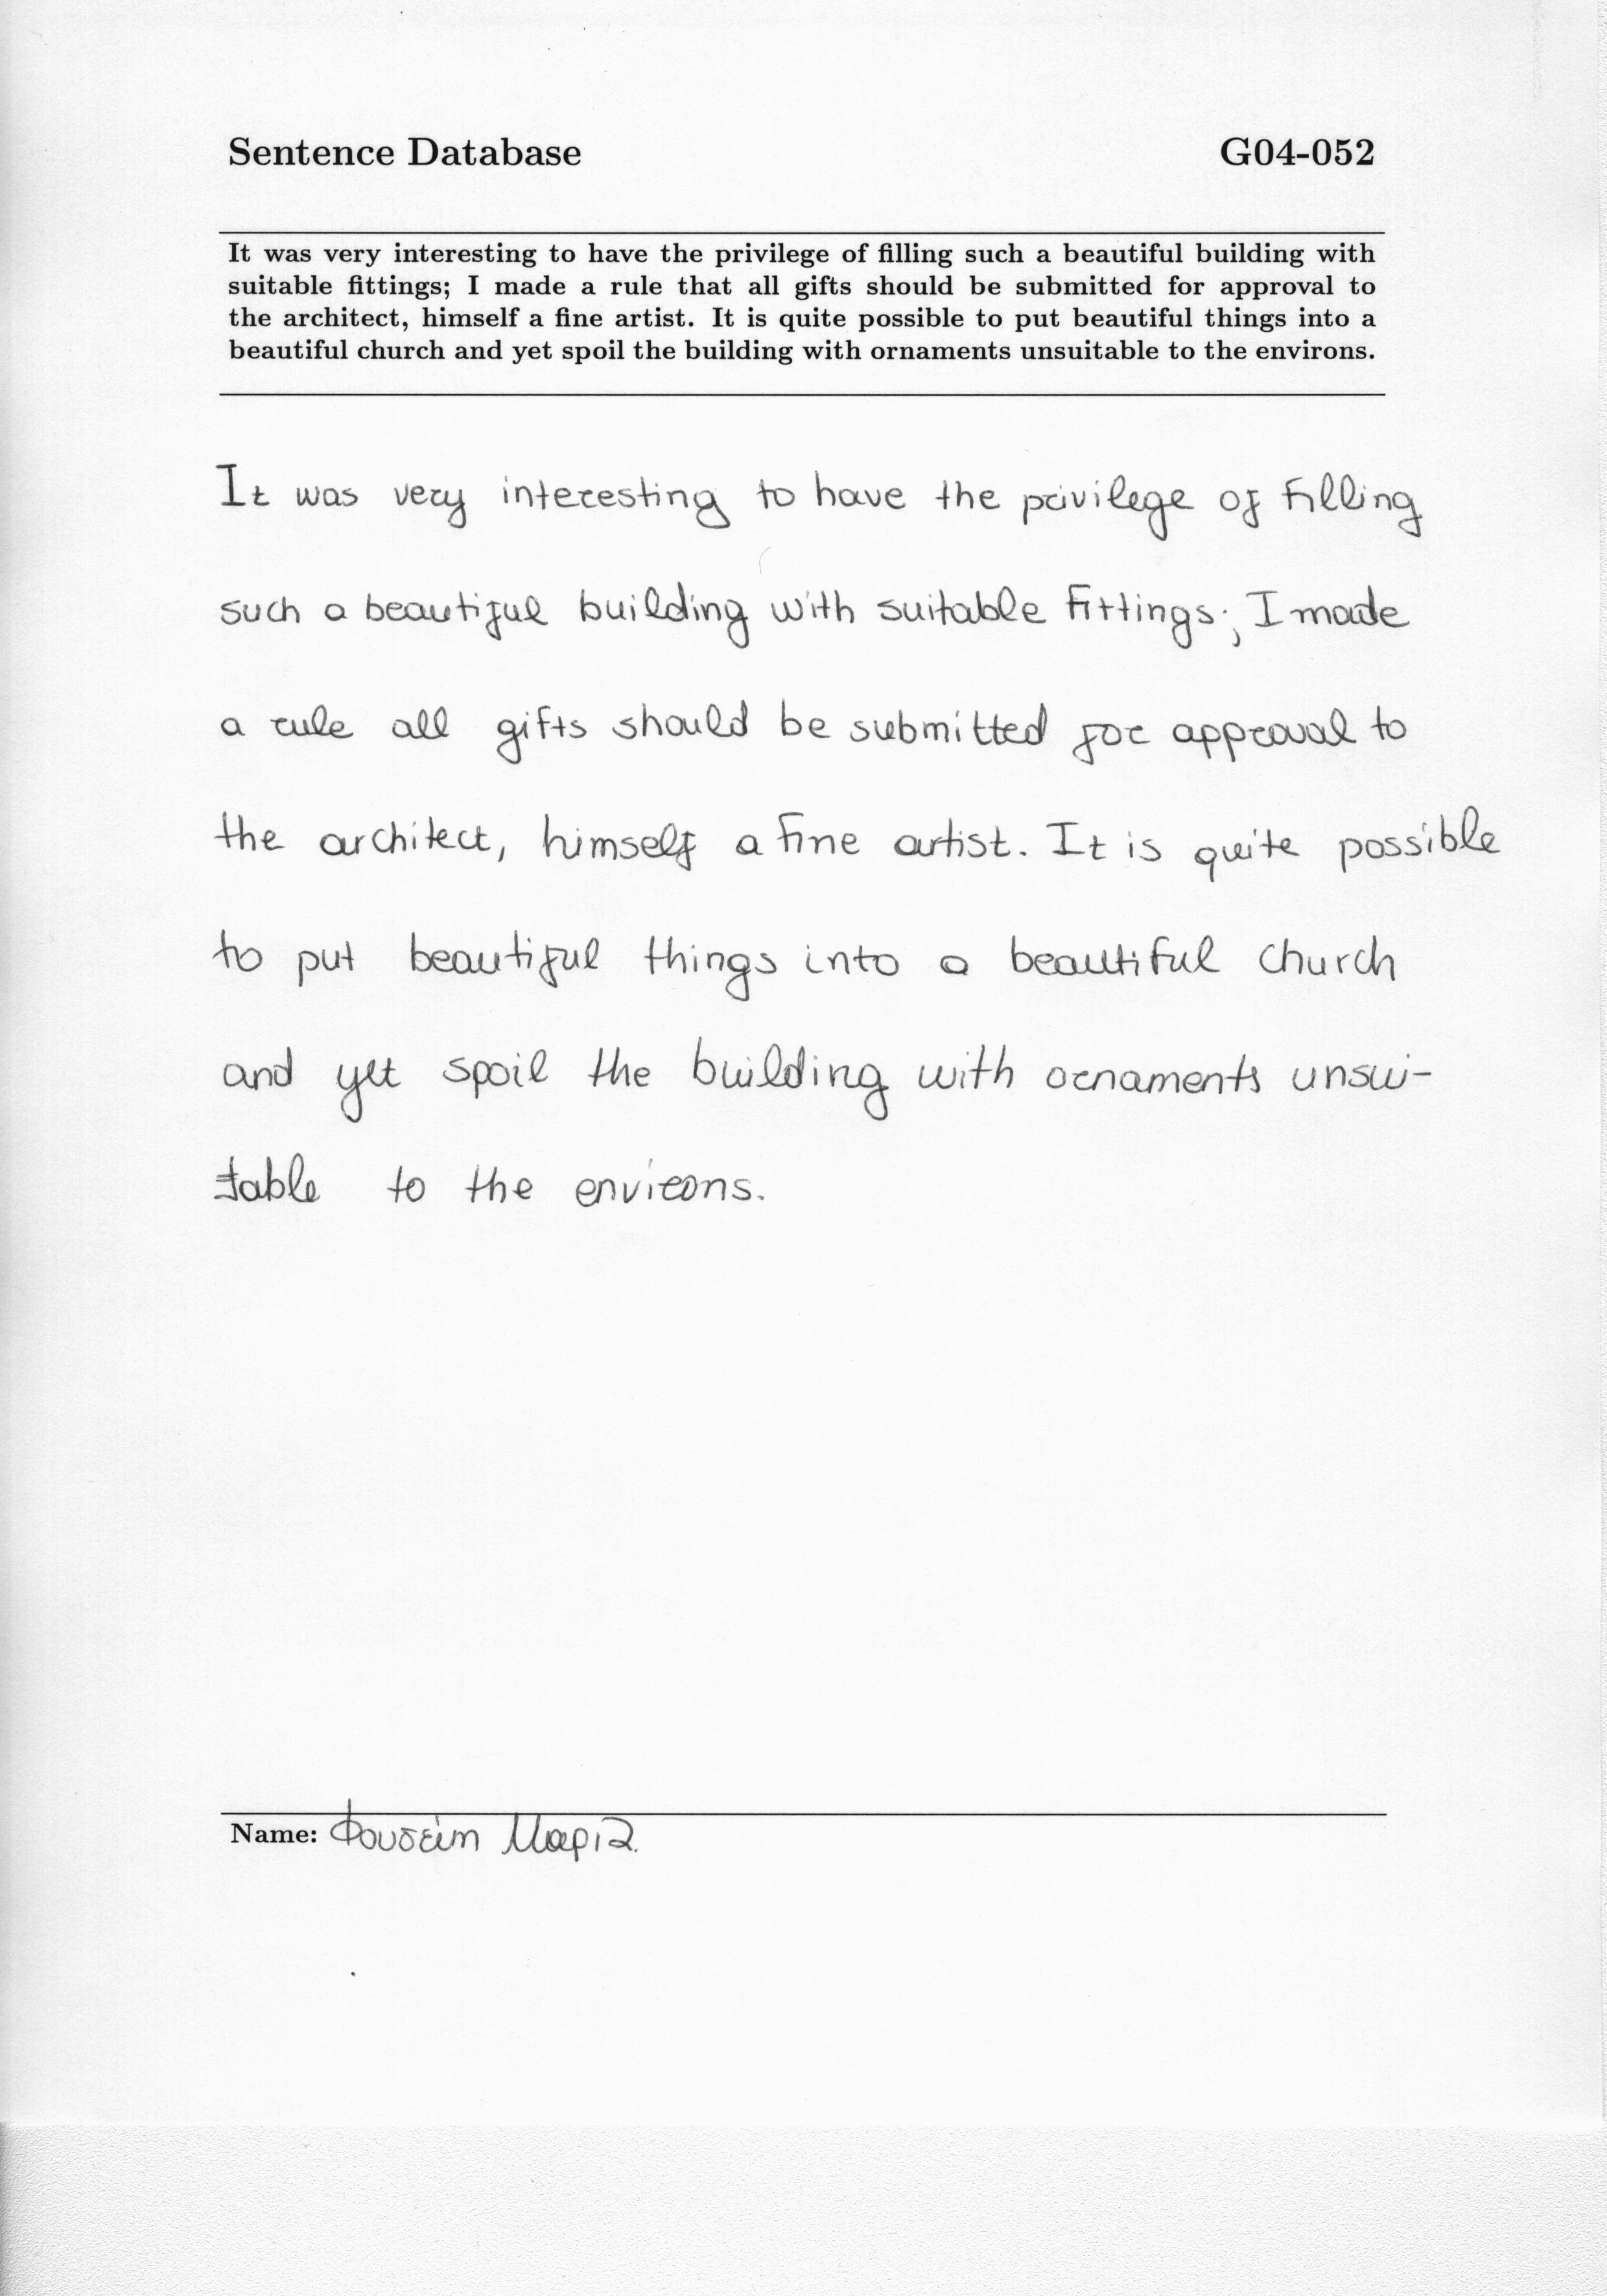 Sentence Database G04-052
It was very interesting to have the privilege of filling such a beautiful building with
suitable fittings; I made a rule that all gifts should be submitted for approval to
the architect, himself a fine artist. It is quite possible to put beautiful things into a
beautiful church and yet spoil the building with ornaments unsuitable to the environs.
It was very interesting to have the privilege of filling
such a beautiful building with suitable fittings; I made
a rule all gifts should be submitted for approval to
the architect, himself a fine artist. It is quite possible
to put beautiful things into a beautiful church
and yet spoil the building with ornaments unsui-
table to the environs.
Name: Μαρία